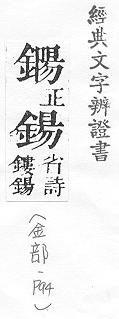 經典文字辨證書
鐊正
鍚省詩
鏤鍚
(金部.P94)